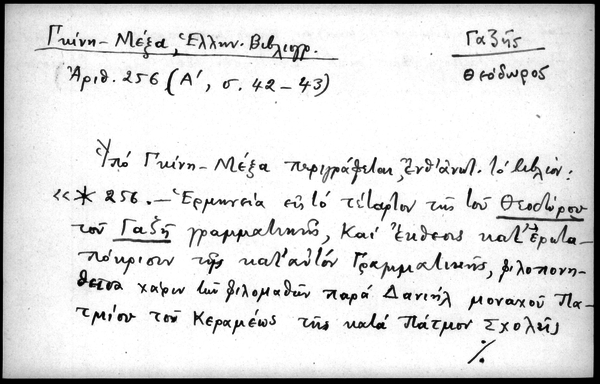 Γκίνη - Μέξα, Ἑλλην. Βιβλιογρ.
Γαζῆς
Θεόδωρος
Ἀριθ. 256 (Α΄, σ. 42 - 43)
Ὑπό Γκίνη - Μέξα περιγράφεται, ἔνθ' ἀνωτ. τό βιβλίον:
«* 256. - Ἑρμηνεία εἰς τό τέταρτον τῆς τοῦ Θεοδώρου
τοῦ Γαζῆ γραμματικῆς, καί ἔκθεσις κατ' ἐρωτα-
πόκρισιν τῆς κατ' αὐτόν Γραμματικῆς, φιλοπονη-
θεῖσα χάριν τῶν φιλομαθῶν παρά Δανιήλ μοναχοῦ Πα-
τμίου τοῦ Κεραμέως τῆς κατά Πάτμον Σχολῆς
./.